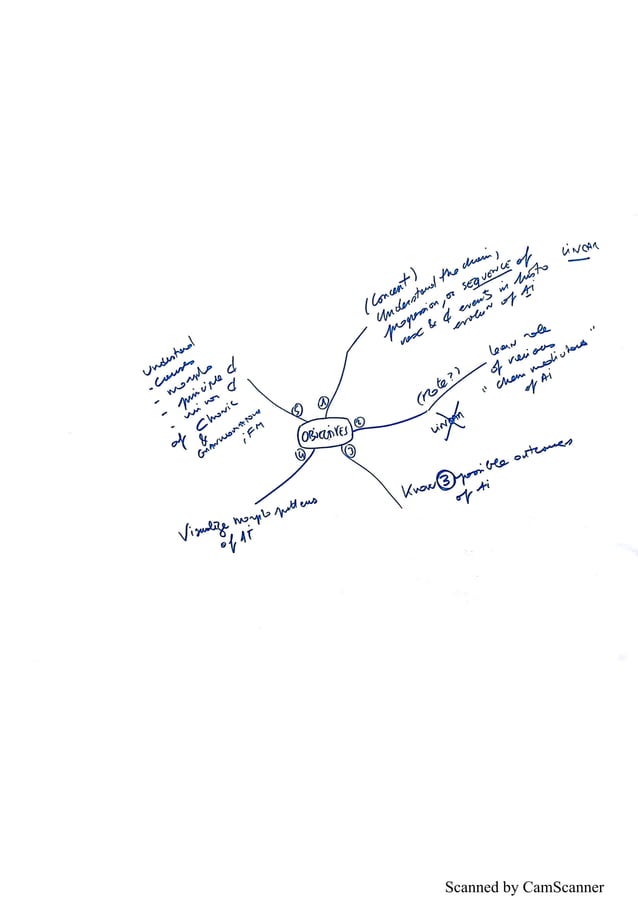 OBJECTIVES
1
(Concept)
Understand the chain,
progression, or SEQUENCE of
vasc & ȼ events in histo
evolution of Ai
LINEAR
2
(Rote?)
LINEAR
learn role
of various
"chem mediators"
of Ai
3
Know 3 possible outcomes
of Ai
4
Visualize morpho patterns
of Ai
5
Understand
- causes
- morpho
- principle ȼ
- minor ȼ
of Chronic
&
Granulomatous
iFM
Scanned by CamScanner